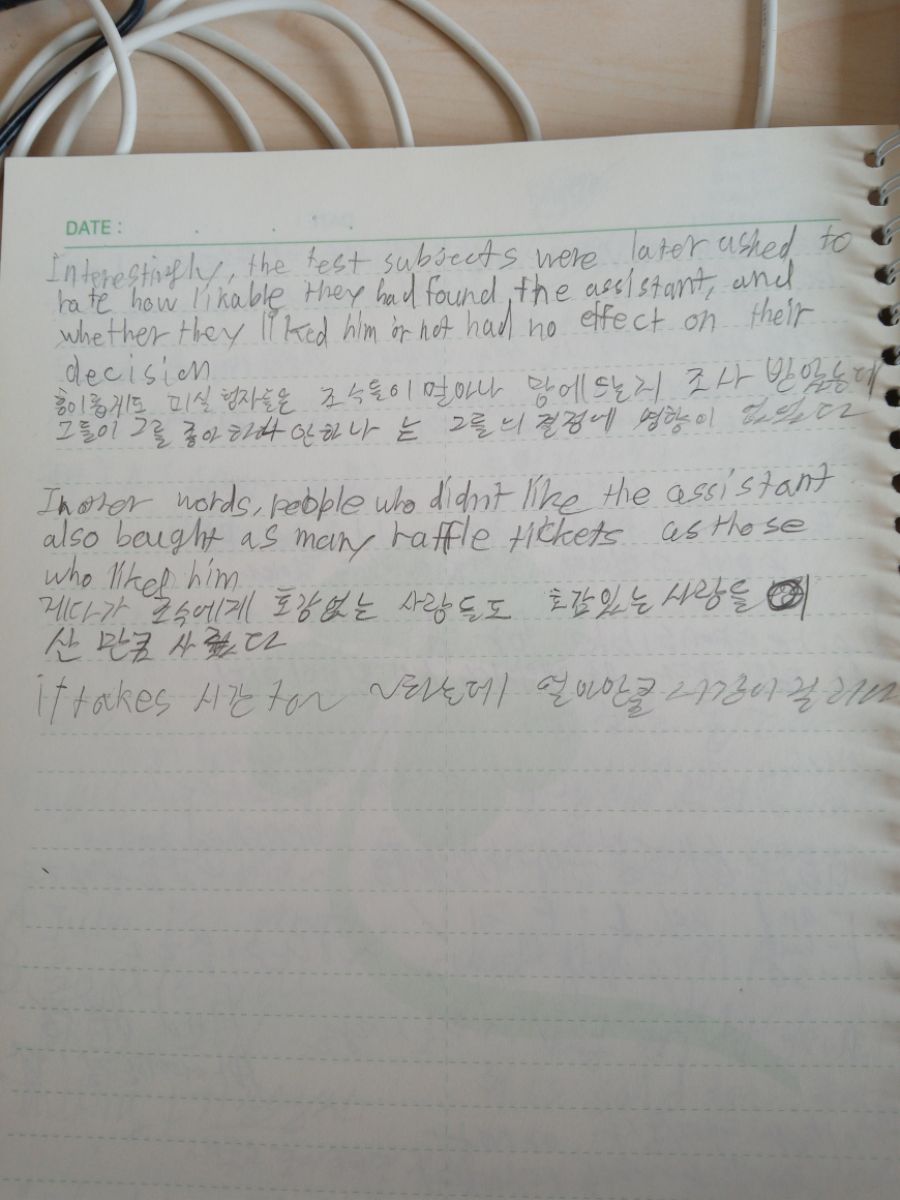 DATE : . . .
Interestingly, the test subjects were later ashed to
rate how likable they had found the assistant, and
whether they liked him or not had no effect on their
decision
흥이롭게도 피실험자들은 조식들이 얼마나 맘에드는지 조사 받았는데
그들이 그를 좋아하나 안하나 는 그들의 결정에 영향이 없었다
In other words, people who didn't like the assistant
also bought as many raffle tickets as those
who liked him
게다가 조수에게 호감없는 사람들도 호감있는 사람들이
산 만큼 샀다
it takes 시간 to ~하는데 얼마만큼 시간이 걸리다